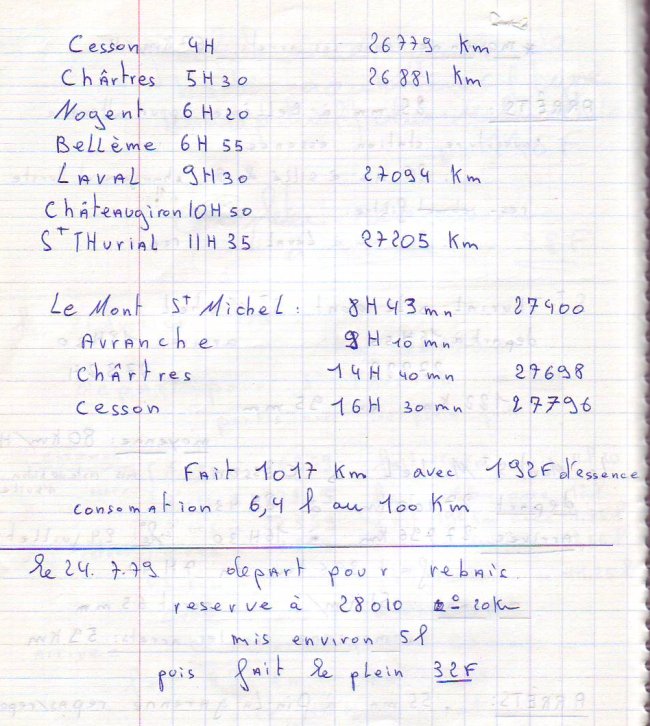 Cesson 4H 26779 Km
Chârtres 5H30 26881 Km
Nogent 6H20
Bellème 6H55
LAVAL 9H30 27094 Km
Châteaugiron 10H50
St THurial 11H35 27205 Km
Le Mont St Michel : 8H43mn 27400
AVRANche 9H10mn
CHÂrtres 14H40mn 27698
Cesson 16H30mn 27796
FAit 1017 Km avec 192F d'essence
consomation 6,4 l au 100 Km
le 24.7.79 depart pour rebais
reserve à 28010 20km
mis environ 5l
puis fait le plein 32F